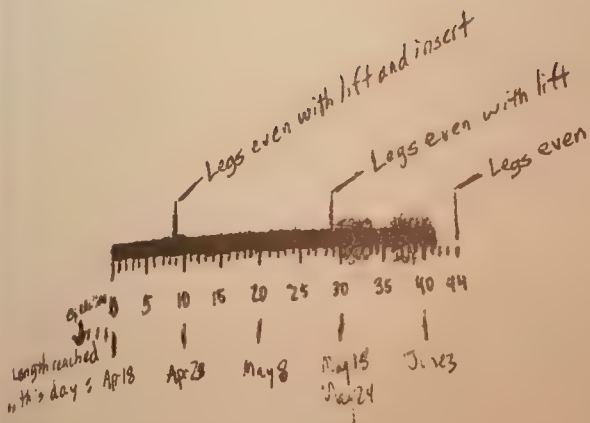 Legs even with lift and insert
Legs even with lift
Legs even
0 5 10 15 20 25 30 35 40 44
Length reached
this day = Apr 18 Apr 28 May 8 May 18 June 3
May 24